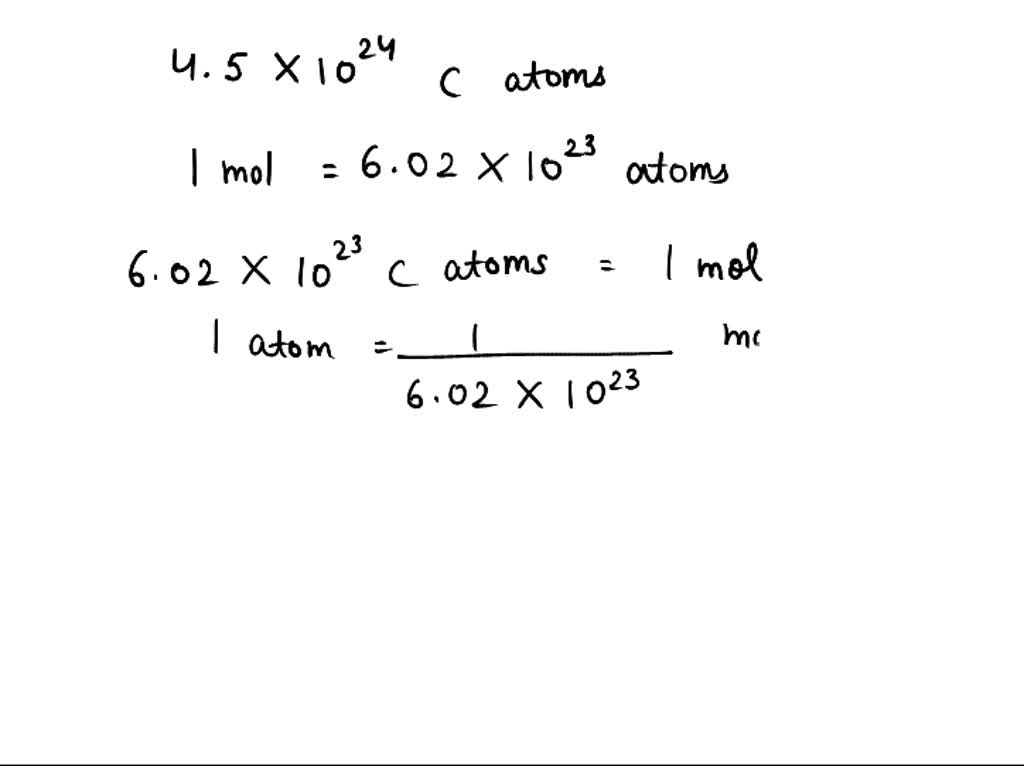 4.5 × 10²⁴ C atoms
1 mol = 6.02 × 10²³ atoms
6.02 × 10²³ C atoms = 1 mol
1 atom = 1 mo
6.02 × 10²³